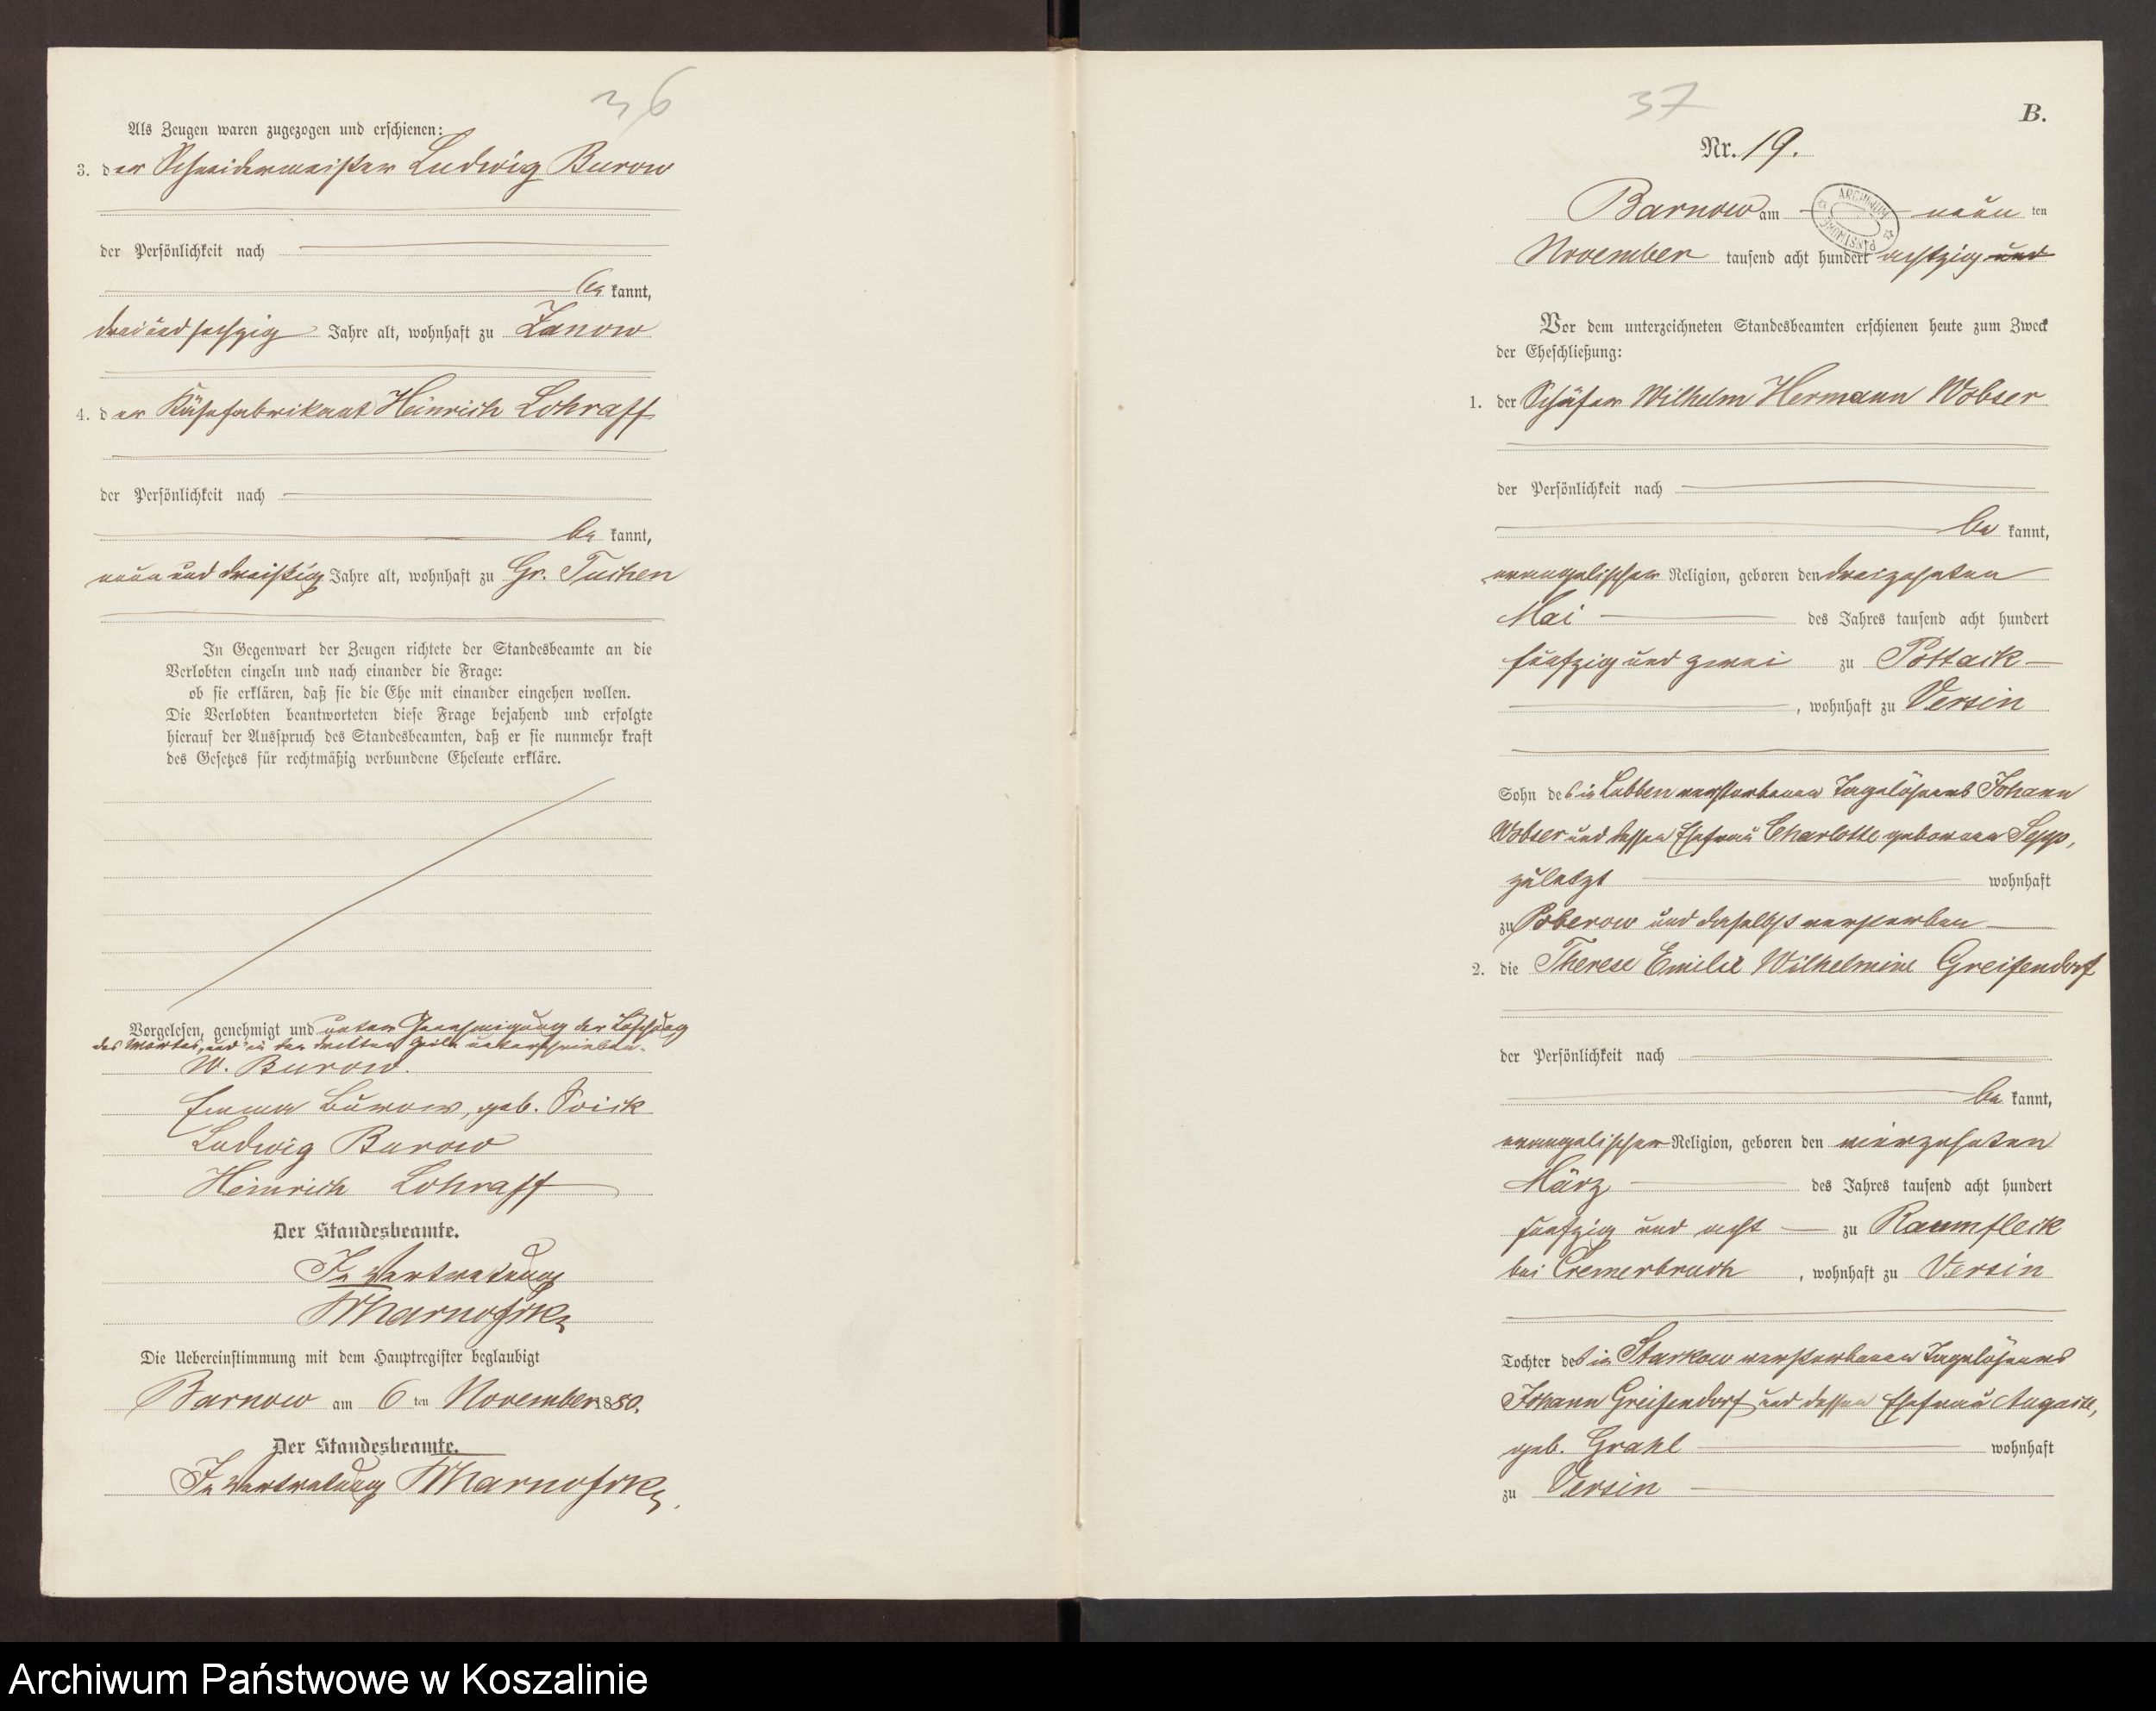 36
Als Zeugen waren zugezogen und erschienen:
3. der Schneidermeister Ludwig Burow
der Persönlichkeit nach
be kannt,
drei und sechzig Jahre alt, wohnhaft zu Zanow
4. der Käsefabrikant Heinrich Lohraff
der Persönlichkeit nach
be kannt,
neun und dreißig Jahre alt, wohnhaft zu Gr. Tuchen
In Gegenwart der Zeugen richtete der Standesbeamte an die
Verlobten einzeln und nach einander die Frage:
ob sie erklären, daß sie die Ehe mit einander eingehen wollen.
Die Verlobten beantworteten diese Frage bejahend und erfolgte
hierauf der Ausspruch des Standesbeamten, daß er sie nunmehr kraft
des Gesetzes für rechtmäßig verbundene Eheleute erkläre.
Vorgelesen, genehmigt und unter Genehmigung der Löschung
des Wortes „und" in der dritten Zeile unterschrieben.
W. Burow.
Emma Burow, geb. Priek
Ludwig Burow
Heinrich Lohraff
Der Standesbeamte.
In Vertretung
Die Uebereinstimmung mit dem Hauptregister beglaubigt
Barnow am 6 ten November 1880.
Der Standesbeamte.
In Vertretung
37
B.
Nr. 19.
Barnow am neun ten
November tausend acht hundert achtzig und
ARCHIWUM PAŃSTWOWE
Vor dem unterzeichneten Standesbeamten erschienen heute zum Zweck
der Eheschließung:
1. der Schäfer Wilhelm Hermann Wobser
der Persönlichkeit nach
be kannt,
evangelischer Religion, geboren den dreizehnten
Mai des Jahres tausend acht hundert
fünfzig und zwei zu Pottack
, wohnhaft zu Versin
Sohn des in Lubben verstorbenen Tagelöhners Johann
Wobser und dessen Ehefrau Charlotte geborenen Sepp,
zuletzt wohnhaft
zu Poberow und daselbst verstorben
2. die Therese Emilie Wilhelmine Greifendorf
der Persönlichkeit nach
be kannt,
evangelischer Religion, geboren den vierzehnten
März des Jahres tausend acht hundert
fünfzig und acht zu Raumfleck
bei Cremerbruch , wohnhaft zu Versin
Tochter des in Starkow verstorbenen Tagelöhners
Johann Greifendorf und dessen Ehefrau Auguste,
geb. Grahl wohnhaft
zu Versin
Archiwum Państwowe w Koszalinie